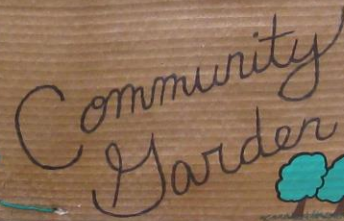 Community
Garden